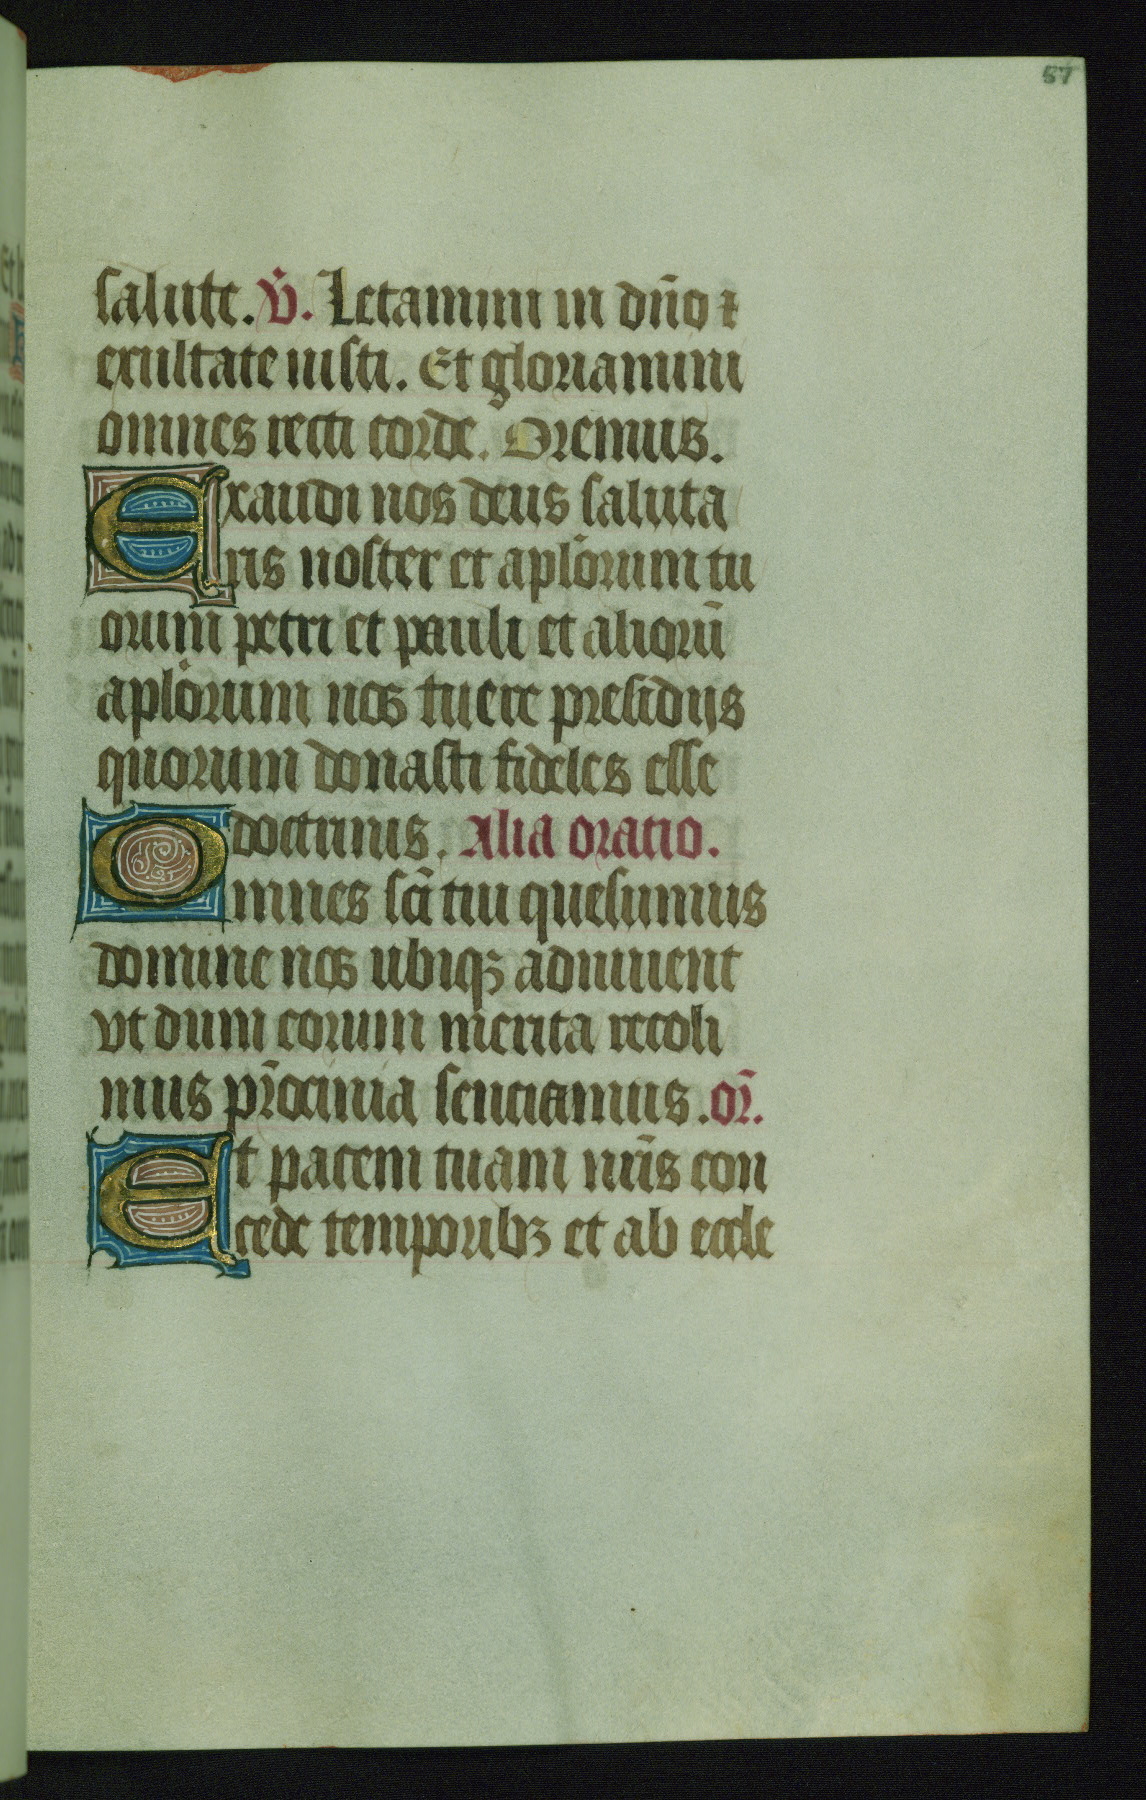 57
salute. v̄. Letamini in dn̄o ⁊
exultate iusti. Et gloriamini
omnes recti corde. Oremus.
Exaudi nos deus saluta
ris noster et apl̄orum tu
orum petri et pauli et aliorū
apl̄orum nos tuere presidijs
quorum donasti fideles esse
doctrinis. Alia oratio.
Omnes sc̄i tui quesumus
domine nos ubiqꝫ adiuuent
vt dum eorum merita recoli
mus pr̄ocinia senciamus. or̄.
Et pacem tuam nr̄is con
cede temporibꝫ et ab eccle